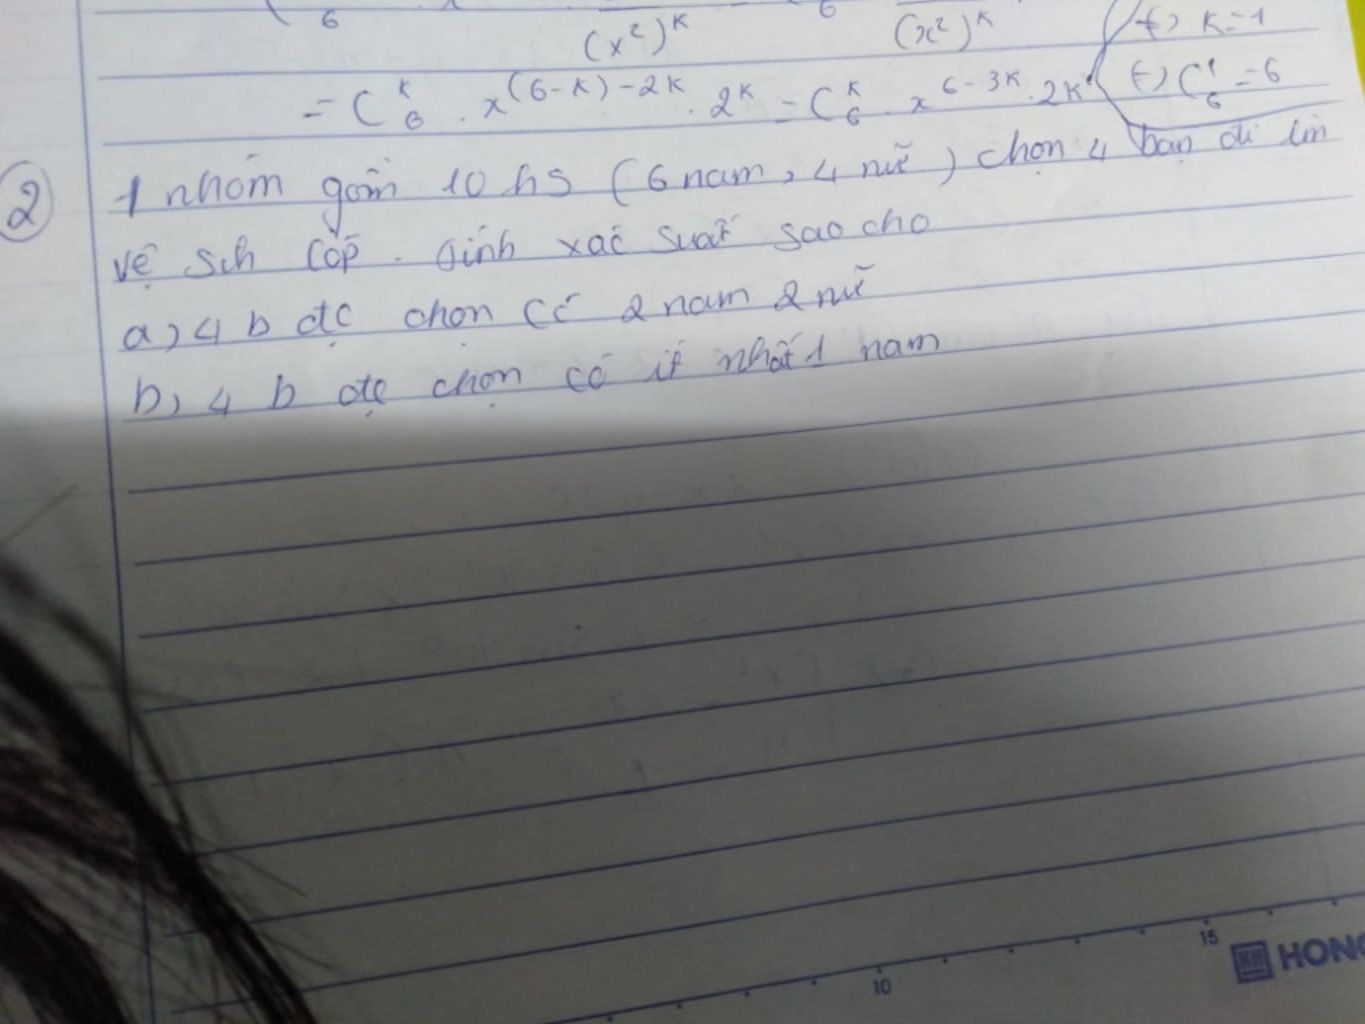 6 6
(x²)ᴷ (x²)ᴷ (+) K=1
= C₆ᴷ . x⁽⁶⁻ᴷ⁾⁻²ᴷ . 2ᴷ = C₆ᴷ . x⁶⁻³ᴷ . 2ᴷ (+) C₆¹ = 6
② 1 nhóm gồm 10 hs (6 nam, 4 nữ) chọn 4 bạn đi
vệ sih lớp. Tính xác suất sao cho
a) 4 b đc chọn có 2 nam 2 nữ
b) 4 b đc chọn có ít nhất 1 nam
10 15 HONG